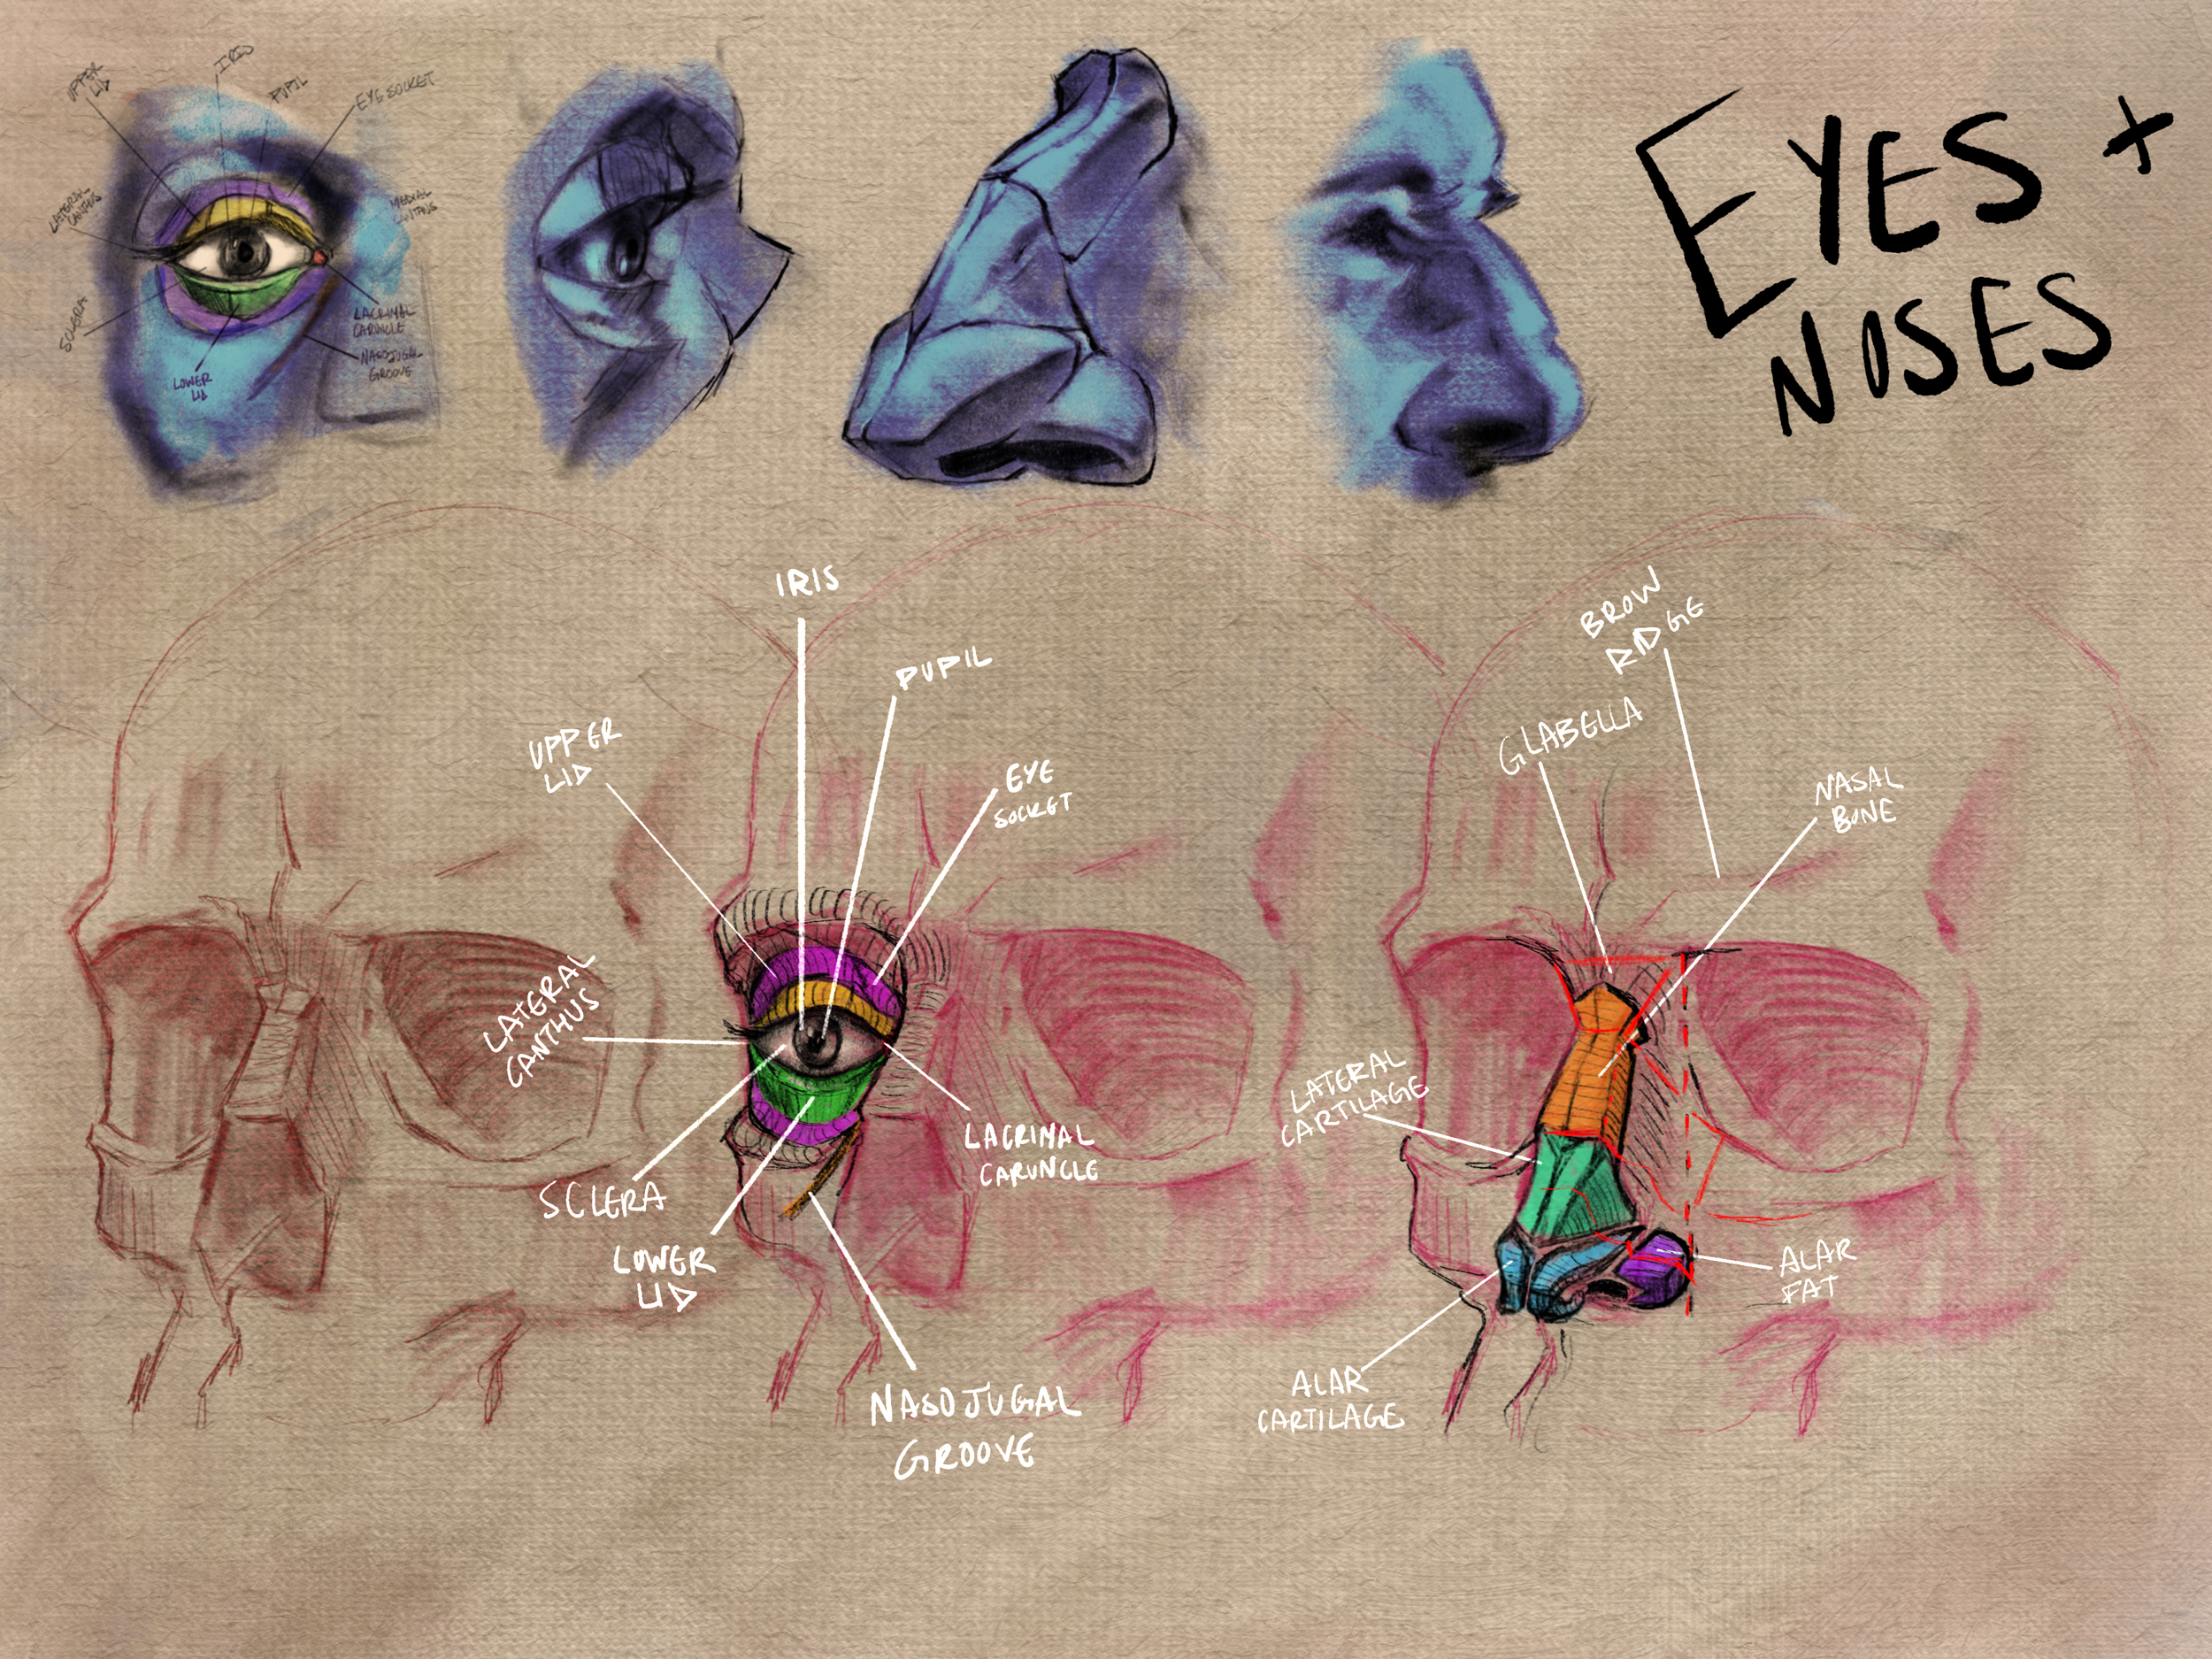 EYES +
NOSES
UPPER
LID
IRIS
PUPIL
EYE SOCKET
LATERAL
CANTHUS
MEDIAL
CANTHUS
SCLERA
LACRIMAL
CARUNCLE
NASOJUGAL
GROOVE
LOWER
LID
IRIS
PUPIL
UPPER
LID
EYE
SOCKET
LATERAL
CANTHUS
LACRIMAL
CARUNCLE
SCLERA
LOWER
LID
NASOJUGAL
GROOVE
BROW
RIDGE
GLABELLA
NASAL
BONE
LATERAL
CARTILAGE
ALAR
FAT
ALAR
CARTILAGE